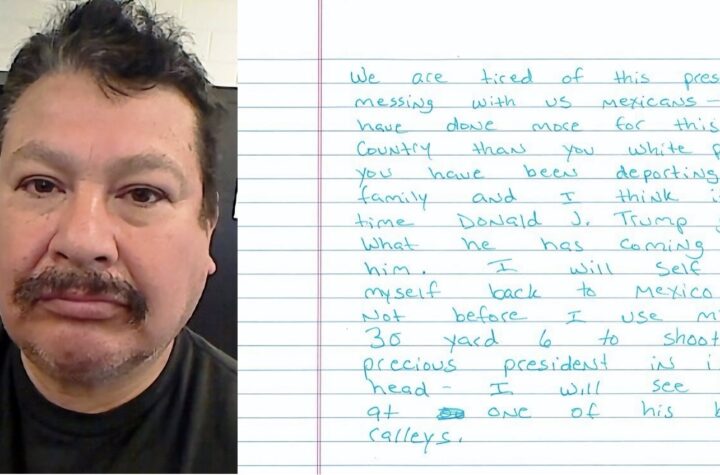 We are tired of this pres
messing with us mexicans -
have done more for this
Country than you white p
you have been deporting
family and I think i
time Donald J. Trump
What he has coming
him. I will self
myself back to mexico
Not before I use m
30 yard 6 to shoot
precious president in i
head - I will see
at one of his b
ralleys.